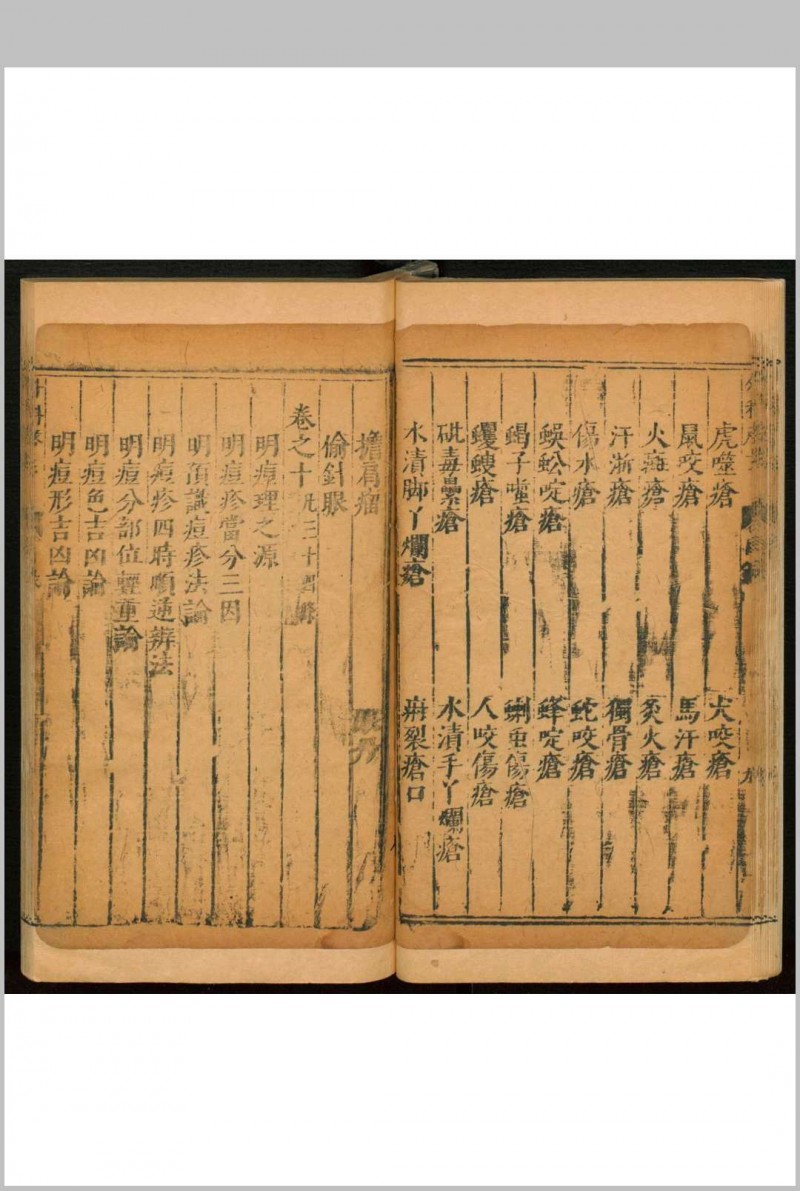 虎噬瘡 犬咬瘡
鼠咬瘡 馬汗瘡
火斑瘡 灸火瘡
汗淅瘡 獨骨瘡
傷水瘡 蛇咬瘡
蜈蚣啶瘡 蜂啶瘡
蝎子啀瘡 蝲虫傷瘡
蠼螋瘡 人咬傷瘡
砒毒曓瘡 水漬手丫爛瘡
水漬脚丫爛瘡 皹裂瘡口
擔肩瘤
偷針眼
卷之十
明痘理之源
明痘疹當分三因
明頂識痘疹法論
明痘疹四時順逆辨法
明痘分部位輕重論
明痘色吉凶論
明痘形吉凶論